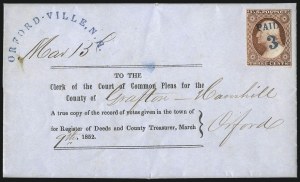 ORFORD-VILLE, N.H.
U.S. POSTAGE
PAID
3
THREE CENTS
Mar 15
TO THE
Clerk of the Court of Common Pleas for the
County of Grafton — Haverhill
A true copy of the record of votes given in the town of
Orford
for Register of Deeds and County Treasurer, March
9th 1852.